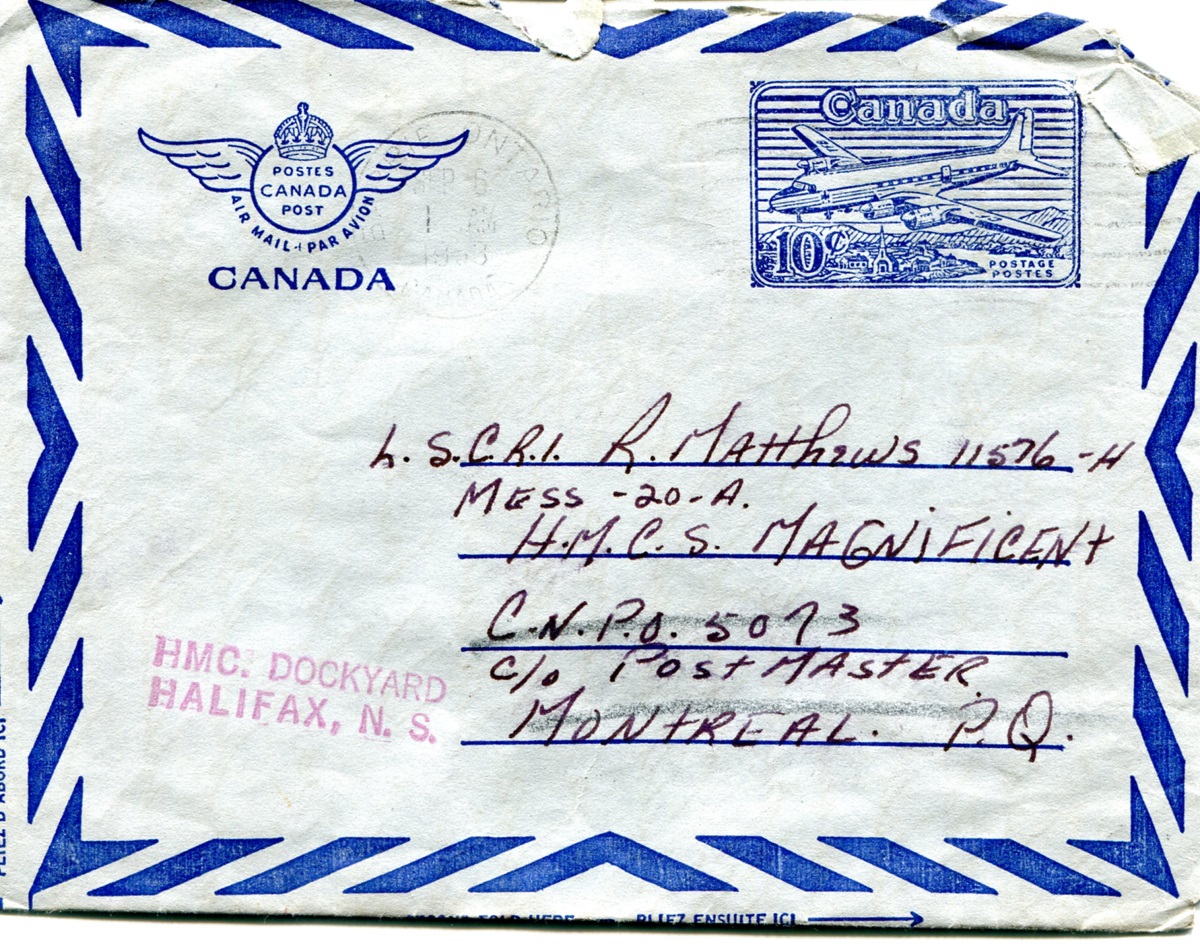 POSTES
CANADA
POST
AIR MAIL-PAR AVION
CANADA
ONTARIO
6
1 AM
1953
Canada
10¢
POSTAGE
POSTES
L.S.C.R.1. R. Matthews 11576-H
MESS -20-A.
H.M.C.S. MAGNiFiCENt
C.N.P.O. 5073
c/o PostMAstER
MONtREAL. P.Q.
HMC. DOCKYARD
HALIFAX, N. S.
PLIEZ D'ABORD ICI
FOLD HERE PLIEZ ENSUITE ICI